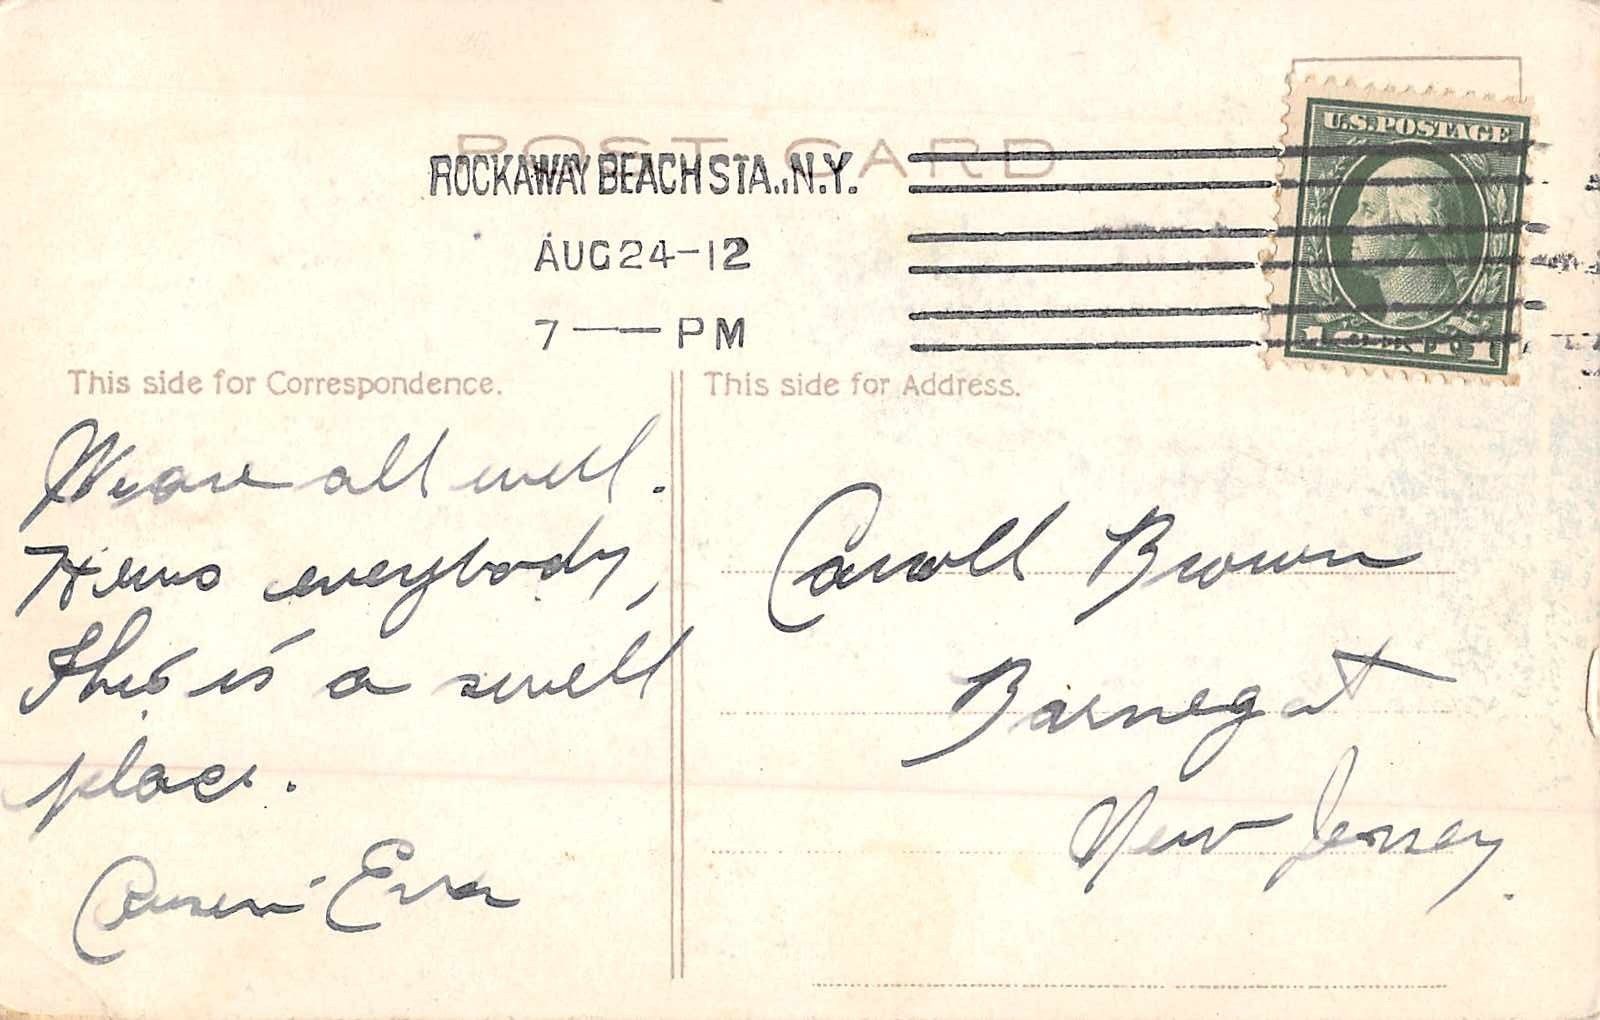 POST CARD
ROCKAWAY BEACH STA., N.Y.
AUG 24-12
7 — PM
U.S. POSTAGE
1 1
This side for Correspondence.
We are all well.
Hows everybody,
This is a swell
place.
Cousin Eva
This side for Address.
Carroll Brown
Barnegat
New Jersey.